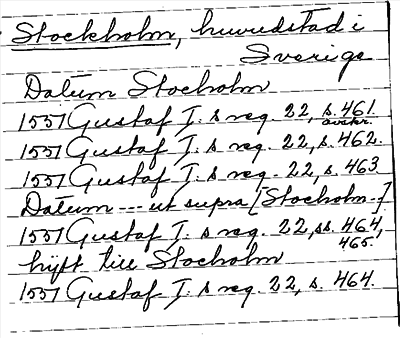 Stockholm, huvudstad i
Sverige
Datum Stocholm
1557 Gustaf I: s reg. 22, s. 461.
avskr.
1557 Gustaf I: s reg. 22, s. 462.
1557 Gustaf I: s reg. 22, s. 463
Datum --- ut supra [Stocholm.]
1557 Gustaf I: s reg. 22, ss. 464,
465.
hijtt till Stocholm
1557 Gustaf I: s reg. 22, s. 464.